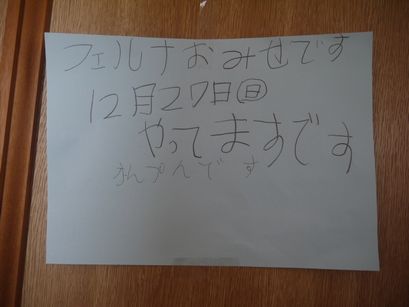 フェルナおみせです
12月27日㊐
やってますです
おんぷんです